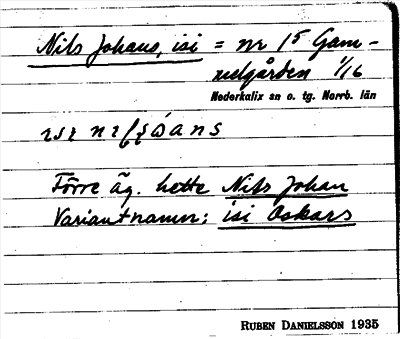 Nils Johans, isi = nr 15 Gam-
melgården 1/16
Nederkalix sn o. tg. Norrb. län
Förre äg. hette Nils Johan
Variantnamn: isi Oskars
RUBEN DANIELSSON 1935